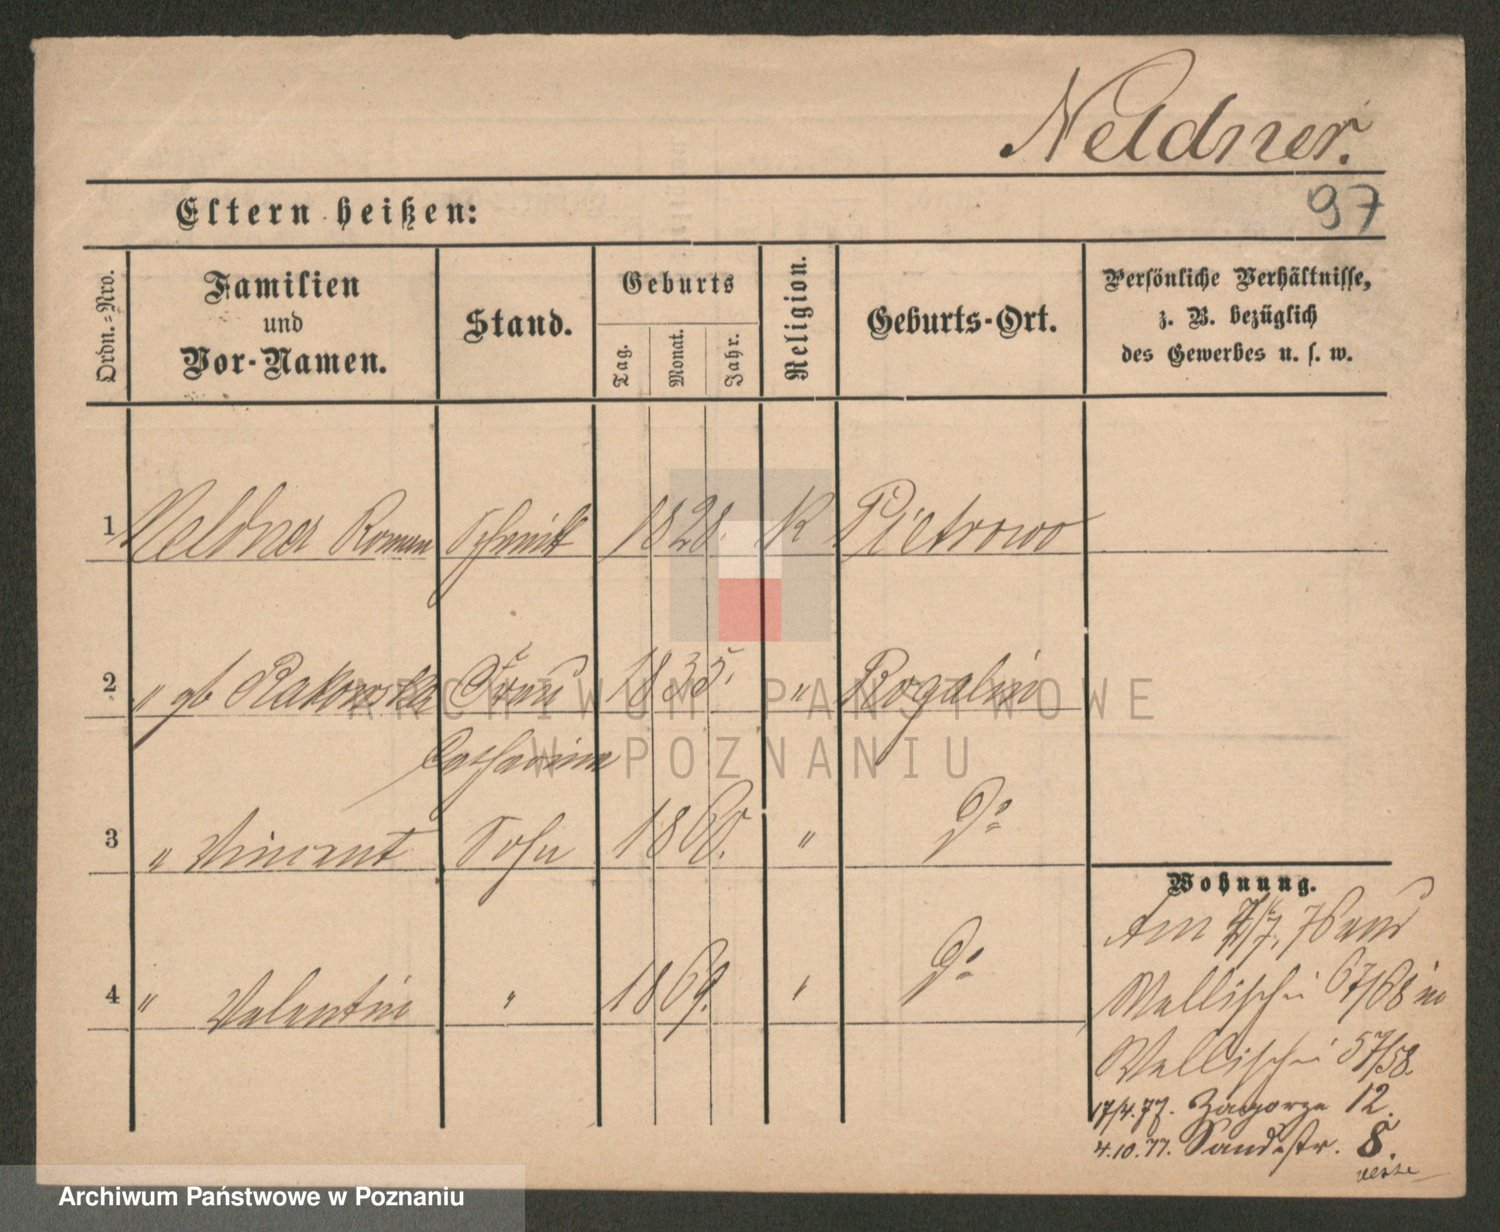 Neldner.
97
Eltern heißen:
Ordn.-Nro.
Familien
und
Vor-Namen.
Stand.
Geburts
Tag.
Monat.
Jahr.
Religion.
Geburts-Ort.
Persönliche Verhältnisse,
z. B. bezüglich
des Gewerbes u. s. w.
1 Neldner Roman Schmidt 1828. K Pietrowo
2 " gb Rakowska Frau 1835. " Rogalin
Catharina
3 " Vincent Sohn 1860. " Do
4 " Valentin " 1869. " Do
Wohnung.
Am 4/7. 76 aus
Wallischei 67/68 in
Wallischei 57/58.
17/4.77. Zagorze 12.
4.10.77. Sandstr. 8.
ARCHIWUM PAŃSTWOWE
W POZNANIU
Archiwum Państwowe w Poznaniu